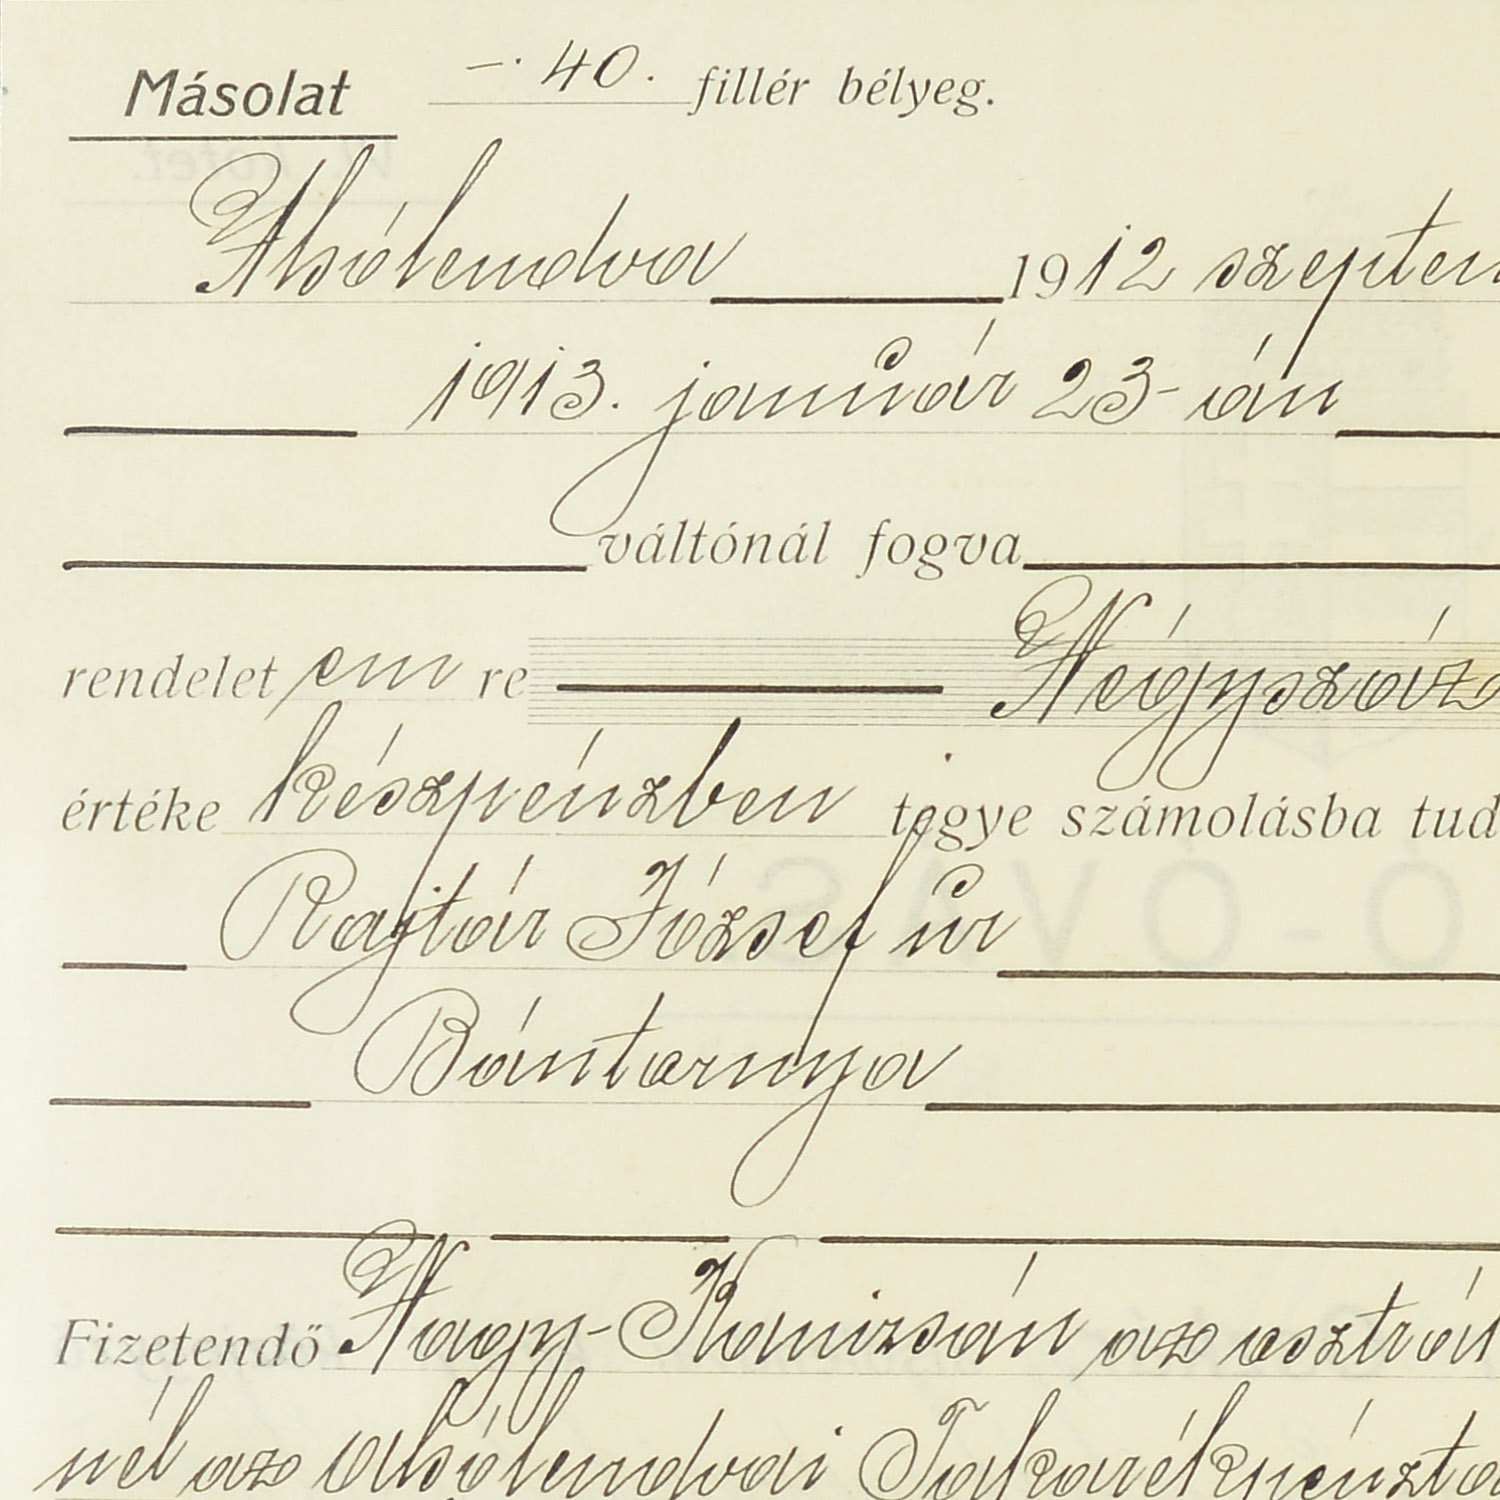 Másolat –.40. fillér bélyeg.
Alsólendva 1912 szeptem
1913. január 23-án
váltónál fogva
rendeletemre Négyszáz
értéke készpénzben tegye számolásba tud
Rajtár József úr
Bántornya
Fizetendő Nagy-Kanizsán az osztrák
nél az alsólendvai Takarékpénzta